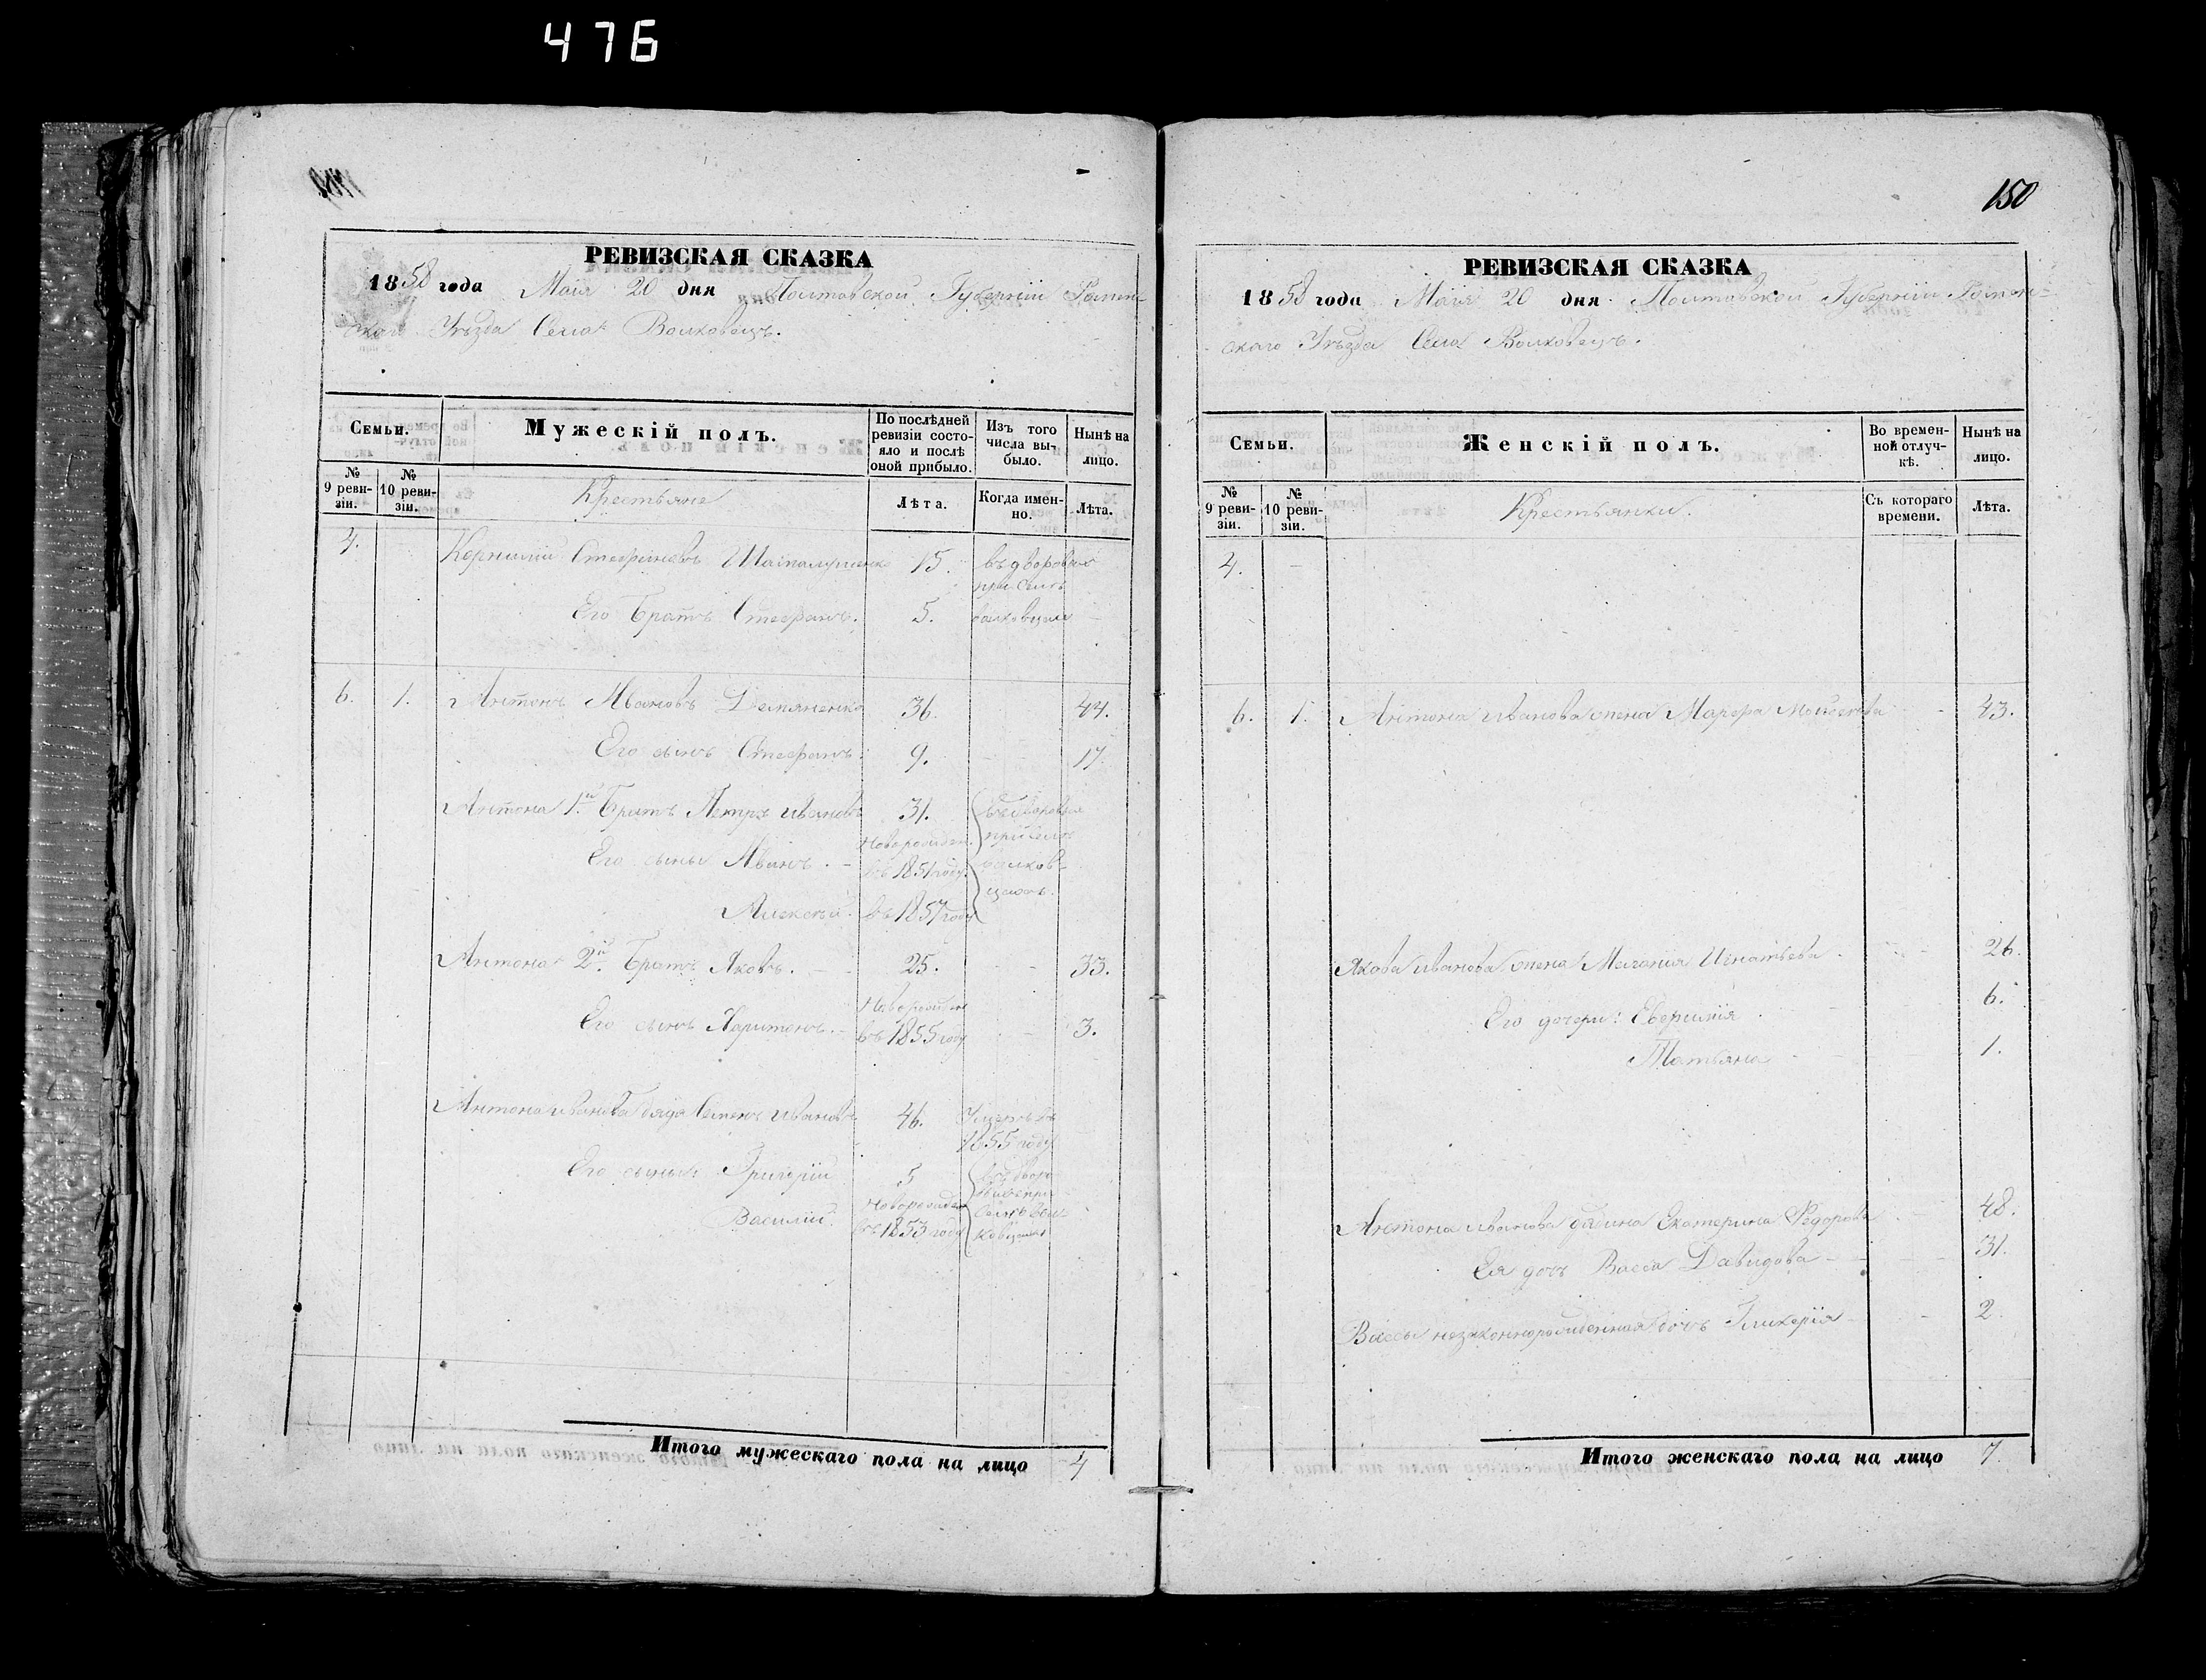 476
150
РЕВИЗСКАЯ СКАЗКА
1858 года Маія 20 дня Полтавской Губерніи Ромен-
скаго Уѣзда Села Волковецъ.
Семьи.
Мужескій полъ.
По послѣдней ревизіи состояло и послѣ оной прибыло.
Изъ того числа выбыло.
Нынѣ на лицо.
№ 9 ревизіи.
№ 10 ревизіи.
Крестьяне
Лѣта.
Когда именно.
Лѣта.
4. Стефановъ 15. въ дворовые
при селѣ
Его Братъ Стефанъ. 5. волковцахъ
6. 1. Антонъ Ивановъ Демяненко 36. 44.
Его сынъ Стефанъ. 9. - - 17.
Антона 1й Братъ Петръ Ивановъ 31. въ дворовые
Новорожден. при селѣ
Его сыны Иванъ. - въ 1851 году волков-
цахъ.
Алексѣй. въ 1857 году
Антона 2й Братъ Яковъ. - 25. - 33.
Новорожден
Его сынъ Харитонъ. - въ 1855 году - 3.
Антона Иванова дядя Семенъ Ивановъ 46. Умеръ въ
1855 году
Его сынья Григорій 5
Новорожден
Василій. въ 1853 году ковцахъ
Итого мужескаго пола на лицо 4
РЕВИЗСКАЯ СКАЗКА
1858 года Маія 20 дня Полтавской Губерніи Ромен-
скаго Уѣзда Села Волковецъ.
Семьи.
Женскій полъ.
Во временной отлучкѣ.
Нынѣ на лицо.
№ 9 ревизіи.
№ 10 ревизіи.
Крестьянки.
Съ котораго времени.
Лѣта.
4. -
6. 1. Антона Иванова жена Марфа Моисеева - 43.
Якова Иванова жена Меланія Игнатьева. - 26.
Его дочери: Евфимія 6.
Татьяна 1.
Антона Иванова дядина Екатерина Федорова - 48.
Ея дочь Васса Давидова - 31.
Вассы незаконнорожденная дочь Гликерія - 2
Итого женскаго пола на лицо 7.